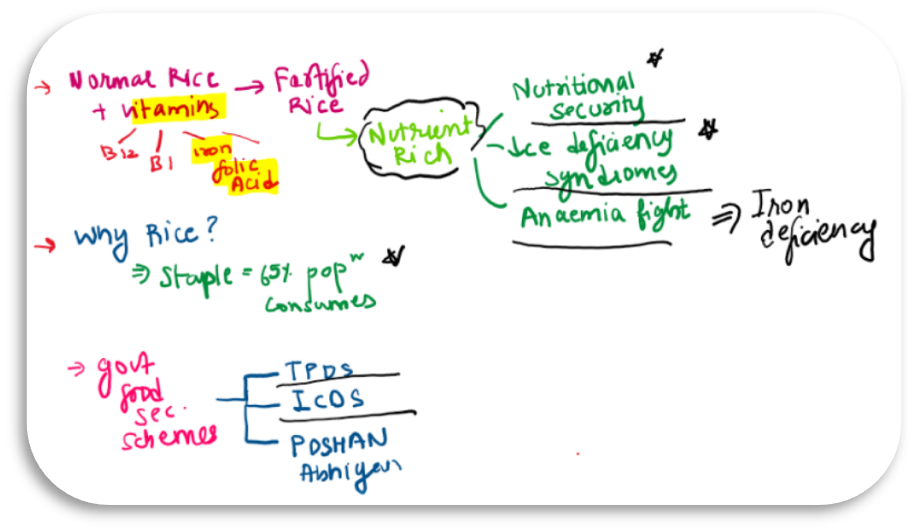 → Normal Rice → Fortified
+ vitamins Rice
B12 B1 iron folic
Acid
→ Nutrient
Rich
Nutritional
security
↓ce deficiency
syndromes
Anaemia fight ⇒ Iron
deficiency
→ Why Rice?
⇒ Staple = 65% popⁿ
consumes
→ govt
food
sec.
schemes
TPDS
ICDS
POSHAN
Abhiyan